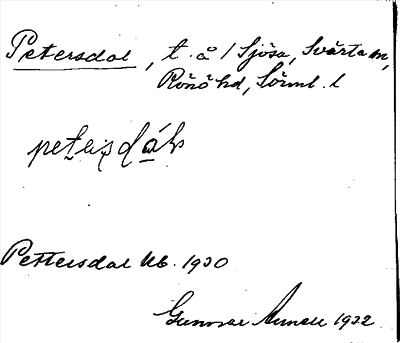 Petersdal, t. å 1 Sjösa, Svärta sn,
Rönö hd, Sörml. l
Pettersdal Ub. 1930
Gunnar 1932